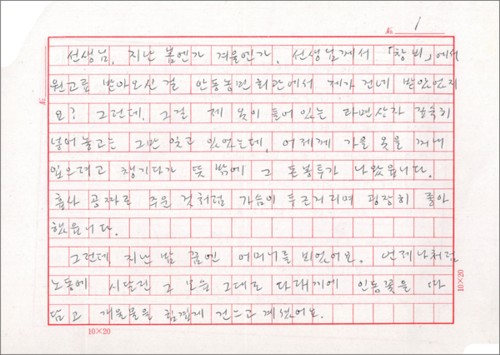 1
선생님. 지난 봄엔가 겨울엔가. 선생님께서 「창비」에서
원고료 받아오신 걸 안동농민회관에서 제가 건네 받았었지
요? 그런데, 그걸 제 옷이 들어있는 라면상자 깊숙히
넣어놓고는 그만 잊고 있었는데, 어저께 가을 옷을 꺼내
입으려고 챙기다가 뜻밖에 그 돈봉투가 나왔읍니다.
흡사 공짜로 주운 것처럼 가슴이 두근거리며 굉장히 좋아
했읍니다.
그런데 지난밤 꿈엔 어머니를 뵈었어요. 언제나처럼
노동에 시달린 그 모습 그대로 다래끼에 인동꽃을 따
담고 개울물을 힘겹게 건느고 계셨어요.
10×20
10×20